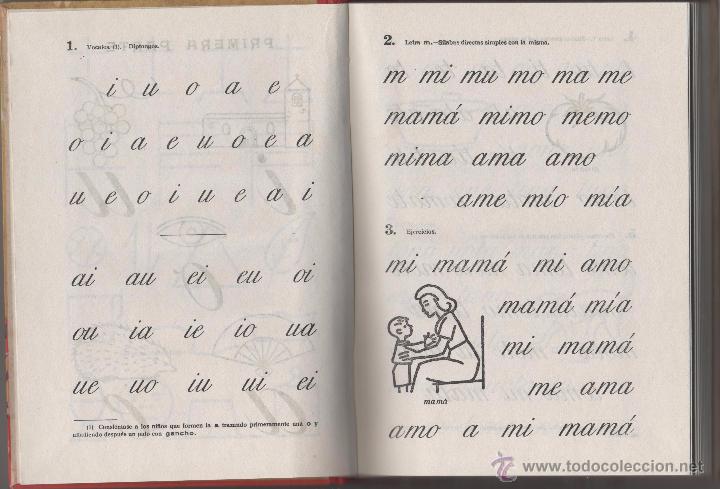 1. Vocales (1). Diptongos.
i u o a e
o i a e u o e a
u e o i u e a i
ai au ei eu oi
ou ia ie io ua
ue uo iu ui ei
(1) Consiéntase a los niños que formen la a trazando primeramente una o y
añadiendo después un palo con gancho.
2. Letra m.—Sílabas directas simples con la misma.
m mi mu mo ma me
mamá mimo memo
mima ama amo
ame mío mía
3. Ejercicios.
mi mamá mi amo
mamá mía
mi mamá
me ama
mamá
amo a mi mamá
www.todocoleccion.net